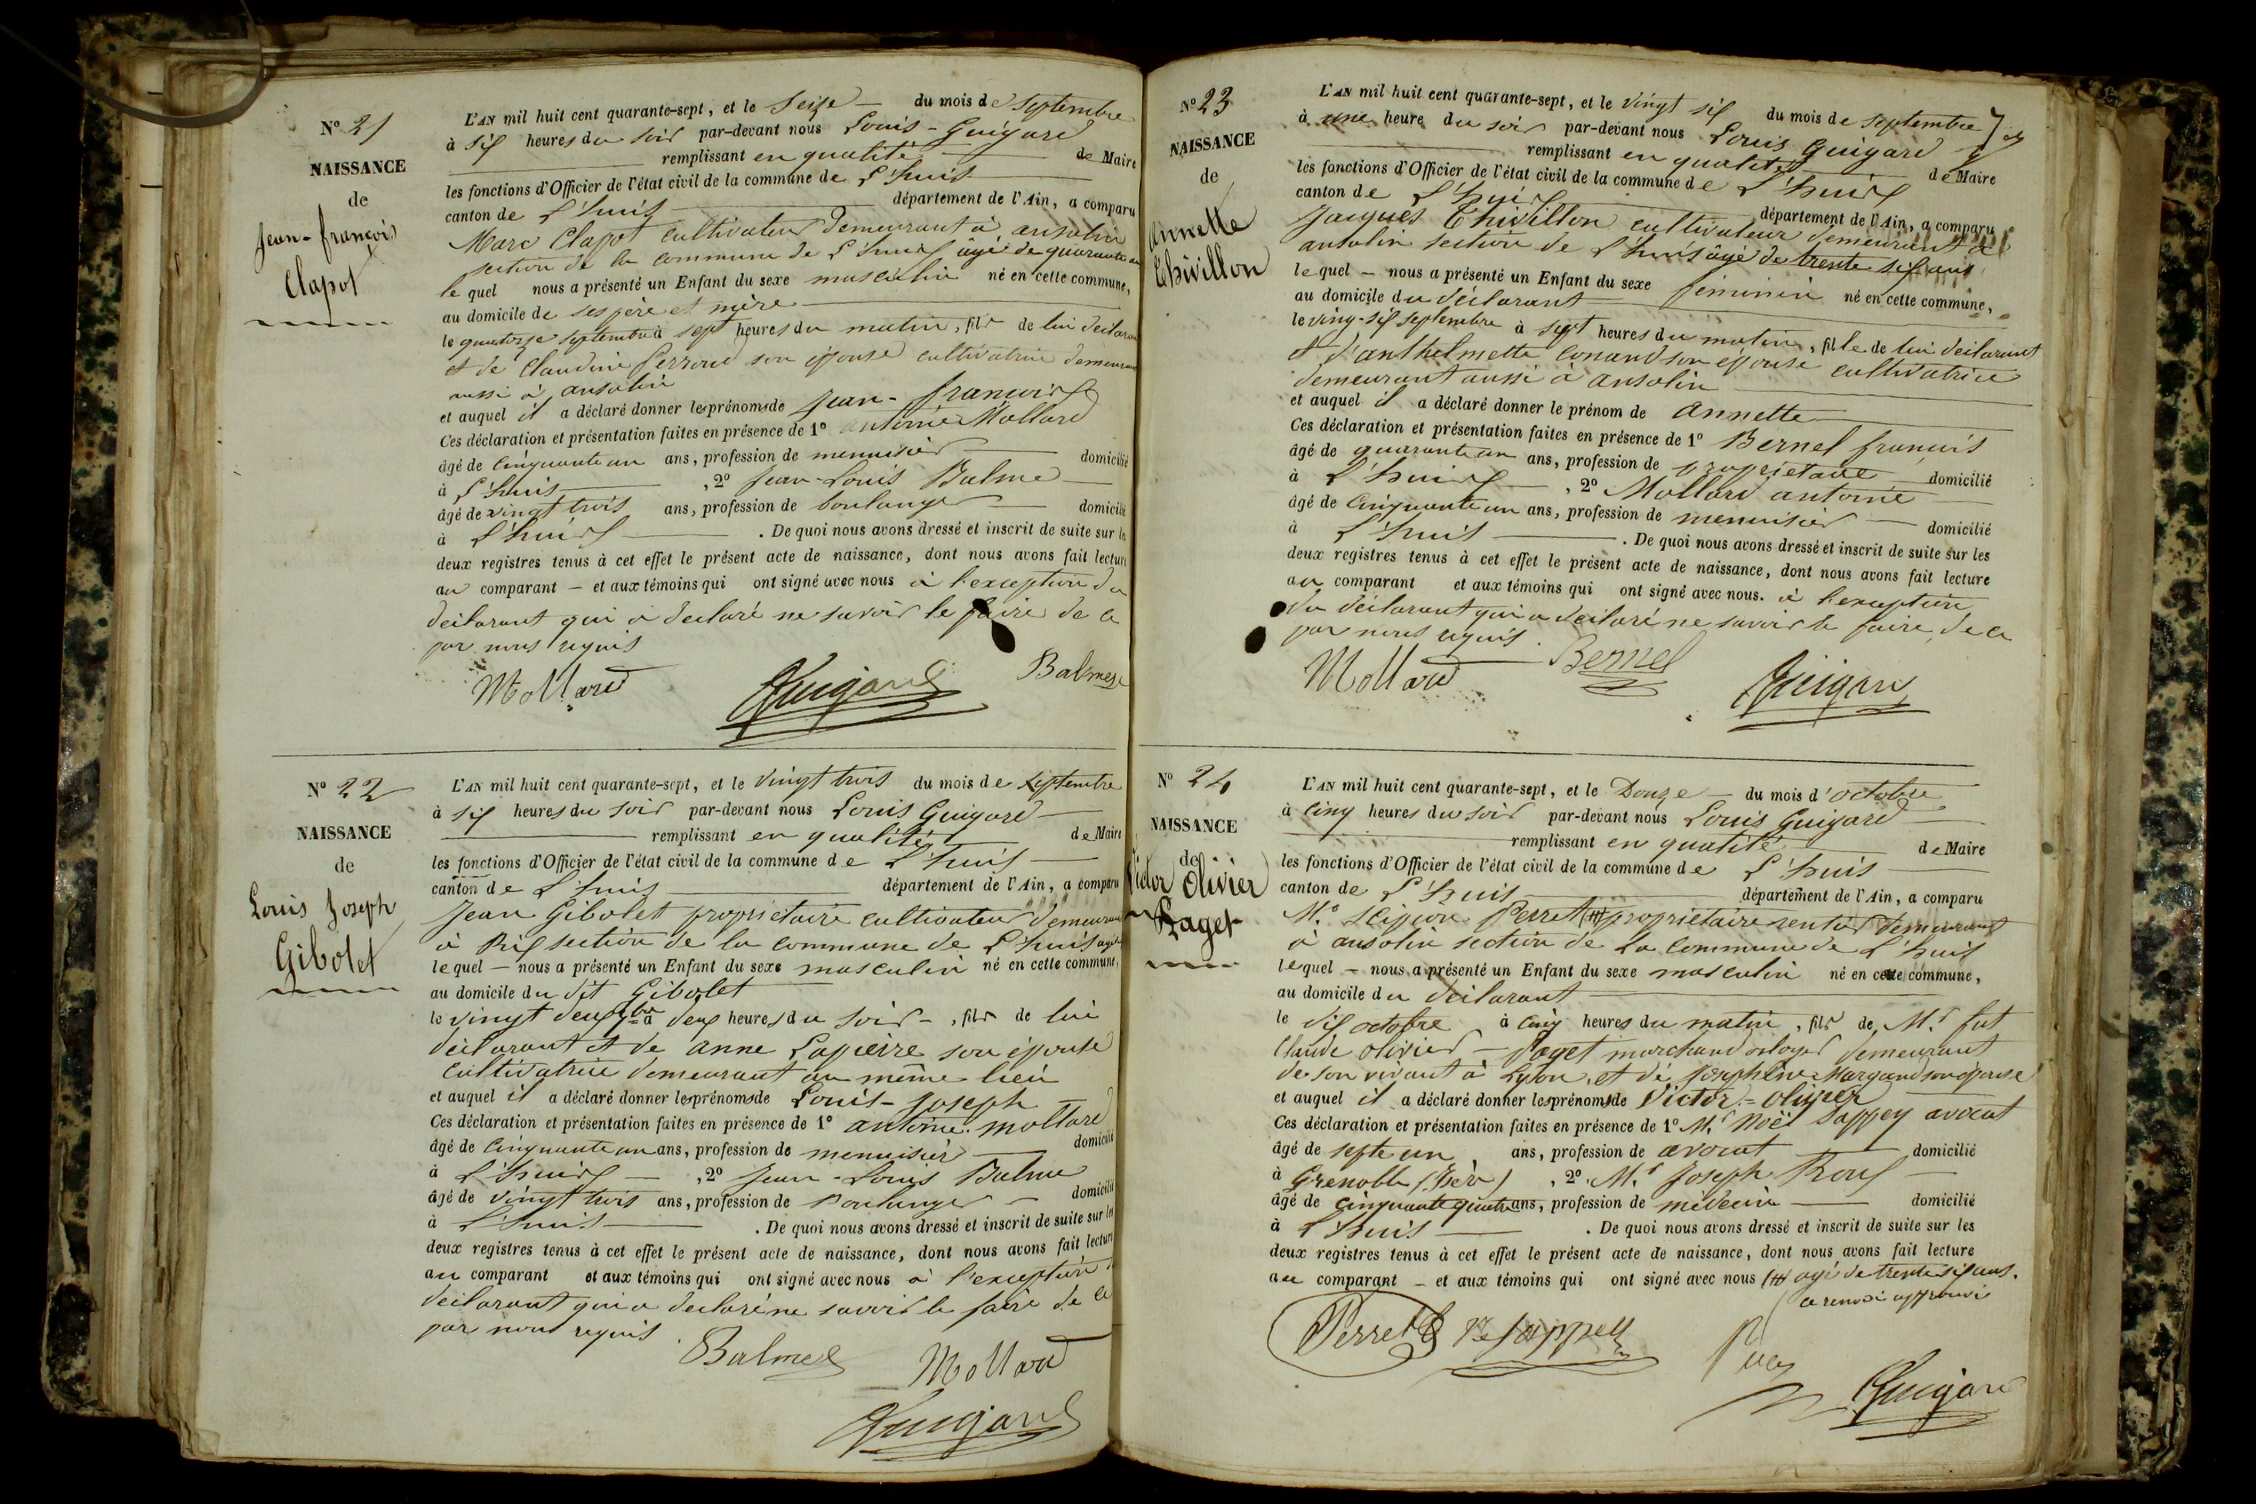 N° 21
NAISSANCE
de
Jean-françois
Clapot
L'AN mil huit cent quarante-sept, et le Seize du mois de Septembre
à six heures du soir par-devant nous Louis-Guigard
remplissant en qualité de Maire
les fonctions d'Officier de l'état civil de la commune de L'huis
canton de L'huis département de l'Ain, a comparu
Marc Clapot cultivateur demeurant à ansolin
section de la commune de L'huis âgé de quarante
le quel nous a présenté un Enfant du sexe masculin né en cette commune,
au domicile de ses père et mère
le quatorze septembre à sept heures du matin, fils de lui déclarant
et de Claudine Perroud son épouse cultivatrice demeurant
aussi à ansolin
et auquel il a déclaré donner les prénoms de Jean-françois
Ces déclaration et présentation faites en présence de 1° antoine Mollard
âgé de cinquante un ans, profession de menuisier domicilié
à L'huis , 2° Jean-Louis Balme
âgé de vingt trois ans, profession de boulanger domicilié
à L'huis . De quoi nous avons dressé et inscrit de suite sur les
deux registres tenus à cet effet le présent acte de naissance, dont nous avons fait lecture
au comparant — et aux témoins qui ont signé avec nous à l'exception du
déclarant qui a declaré ne savoir le faire de ce
par nous requis
Mollard Guigard Balme
N° 22
NAISSANCE
de
Louis Joseph
Gibolet
L'AN mil huit cent quarante-sept, et le vingt trois du mois de septembre
à six heures du soir par-devant nous Louis Guigard
remplissant en qualité de Maire
les fonctions d'Officier de l'état civil de la commune de L'huis
canton de L'huis département de l'Ain, a comparu
Jean Gibolet propriétaire cultivateur demeurant
à Rix section de la commune de L'huis
lequel — nous a présenté un Enfant du sexe masculin né en cette commune,
au domicile du dit Gibolet
le vingt deux 7bre à deux heures du soir —, fils de lui
déclarant et de anne Lapierre son épouse
cultivatrice demeurant au même lieu
et auquel il a déclaré donner les prénoms de Louis-Joseph
Ces déclaration et présentation faites en présence de 1° antoine mollard
âgé de cinquante un ans, profession de menuisier domicilié
à L'huis , 2° Jean-Louis Balme
âgé de vingt trois ans, profession de boulanger domicilié
à L'huis . De quoi nous avons dressé et inscrit de suite sur les
deux registres tenus à cet effet le présent acte de naissance, dont nous avons fait lecture
au comparant et aux témoins qui ont signé avec nous à l'exception
déclarant qui a declaré ne savoir le faire de ce
par nous requis
Balme Mollard
Guigard
N° 23
NAISSANCE
de
Annette
Chivillon
L'AN mil huit cent quarante-sept, et le vingt six du mois de septembre
à une heure du soir par-devant nous Louis Guigard
remplissant en qualité de Maire
les fonctions d'Officier de l'état civil de la commune de L'huis
canton de L'huis département de l'Ain, a comparu
Jacques Chivillon cultivateur demeurant à
ansolin section de L'huis âgé de trente six ans
le quel — nous a présenté un Enfant du sexe féminin né en cette commune,
au domicile du déclarant
le ving-six septembre à sept heures du matin, fille de lui déclarant
et d'anthelmette Conand son épouse cultivatrice
demeurant aussi à ansolin
et auquel il a déclaré donner le prénom de annette
Ces déclaration et présentation faites en présence de 1° Bernel françois
âgé de quarante un ans, profession de propriétaire domicilié
à L'huis , 2° Mollard antoine
âgé de cinquante un ans, profession de menuisier domicilié
à L'huis . De quoi nous avons dressé et inscrit de suite sur les
deux registres tenus à cet effet le présent acte de naissance, dont nous avons fait lecture
au comparant et aux témoins qui ont signé avec nous. à l'exception
du déclarant qui a déclaré ne savoir le faire, de ce
par nous requis.
Mollard Bernel
Guigard
N° 24
NAISSANCE
de
Victor Olivier
Paget
L'AN mil huit cent quarante-sept, et le Douze du mois d'octobre
à cinq heures du soir par-devant nous Louis Guigard
remplissant en qualité de Maire
les fonctions d'Officier de l'état civil de la commune de L'huis
canton de L'huis département de l'Ain, a comparu
Mr Scipion Perret (+++) propriétaire rentier demeurant
à ansolin section de La commune de L'huis
lequel — nous a présenté un Enfant du sexe masculin né en cette commune,
au domicile du déclarant
le dix octobre à cinq heures du matin, fils de Mr fut
Claude olivier — Paget marchand demeurant
de son vivant à Lyon, et de Joséphine Margand son épouse
et auquel il a déclaré donner les prénoms de Victor-olivier
Ces déclaration et présentation faites en présence de 1° Mr Noël Sappey avocat
âgé de septe un ans, profession de avocat domicilié
à Grenoble (Isère) , 2° Mr Joseph Roux
âgé de cinquante quatre ans, profession de médecin domicilié
à L'huis . De quoi nous avons dressé et inscrit de suite sur les
deux registres tenus à cet effet le présent acte de naissance, dont nous avons fait lecture
au comparant — et aux témoins qui ont signé avec nous (+++ âgé de trente six ans.
ce renvoi approuvé
Perret Sappey Roux
Guigard